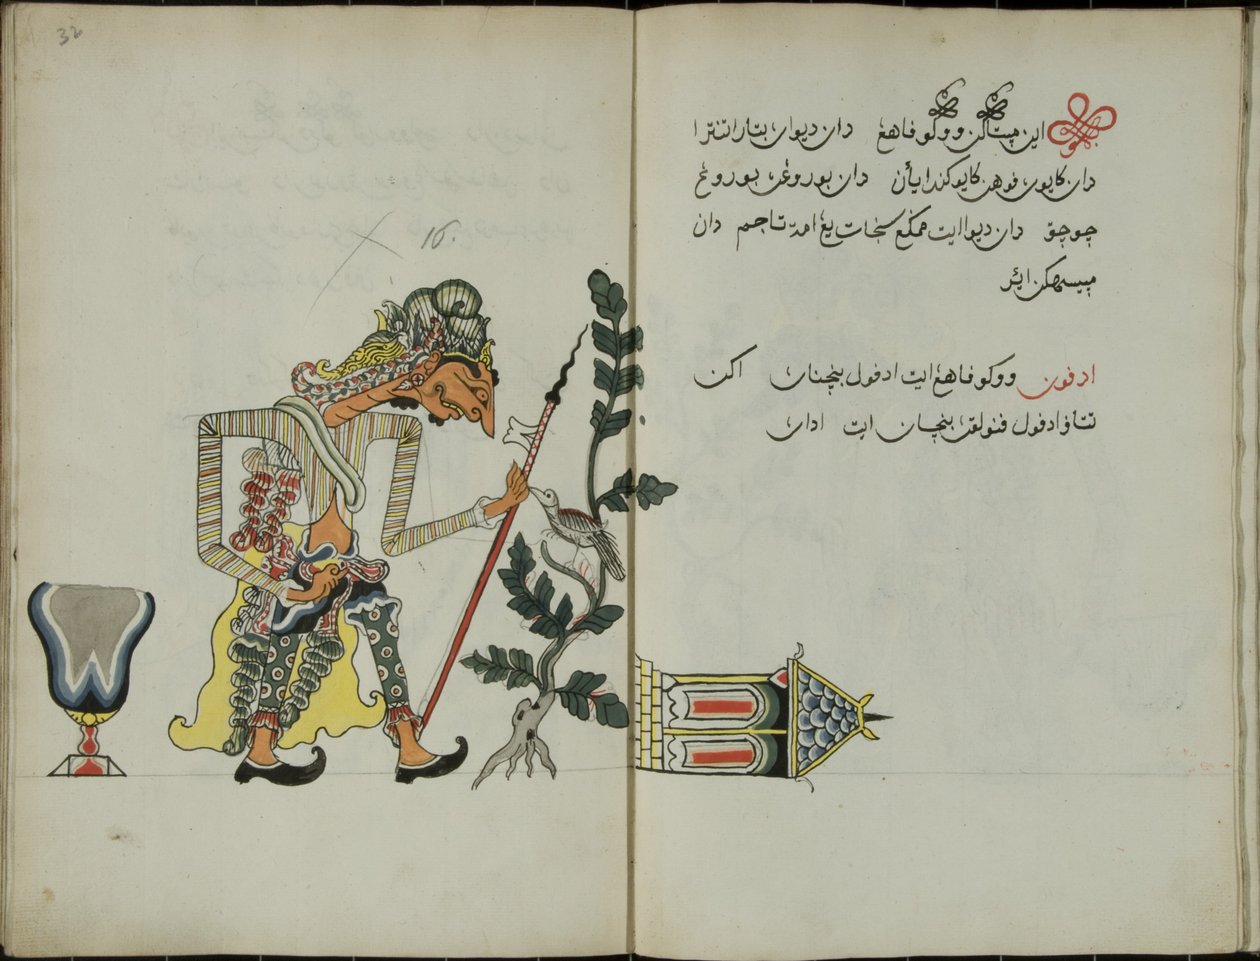 32
16.
اين مپتاکن ووکو فاهغ دان ديوان بتارا تنترا
دان کايون فوهن کايو کندايأن دان بوروڠن بوروڠ
چوچق دان ديوا ايت ممݢڠ سنجات يڠ امة تاجم دان
مميسهکن ايڠر
ادفون ووکو فاهغ ايت ادفول بنچنان اکن
تتاف ادفول فنولقن بنچان ايت ادان